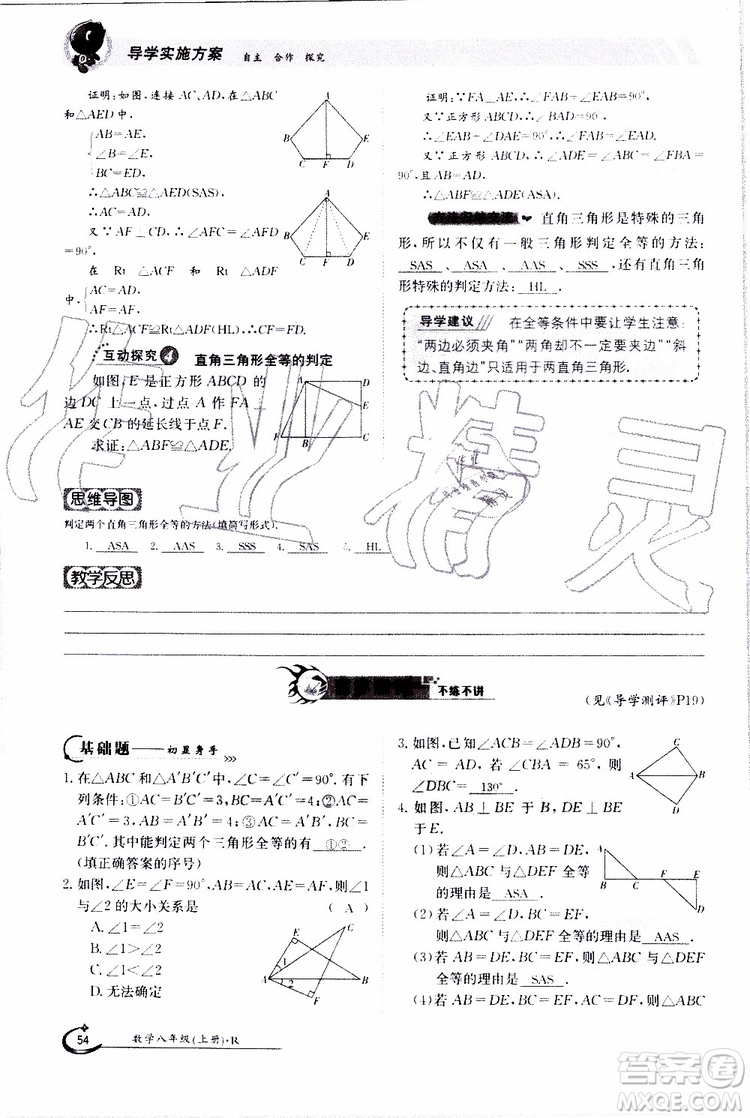 导学实施方案 自主 合作 探究
证明:如图,连接 AC、AD,在△ABC
和△AED 中,
AB=AE,
∠B=∠E,
BC=ED,
∴△ABC≌△AED(SAS).
∴AC=AD.
又∵AF⊥CD,∴∠AFC=∠AFD
=90°.
在 Rt△AFC 和 Rt△ADF
中,
AC=AD,
AF=AF,
∴Rt△ACF≌Rt△ADF(HL).∴CF=DF.
互动探究4 直角三角形全等的判定
如图,E 是正方形 ABCD 的
边 DC 上一点,过点 A 作 FA⊥
AE 交 CB 的延长线于点 F.
求证:△ABF≌△ADE.
证明:∵FA⊥AE,∴∠FAB+∠EAB=90°.
又∵正方形 ABCD,∴∠BAD=90°.
∴∠EAB+∠DAE=90°.∴∠FAB=∠EAD.
又∵正方形 ABCD,∴∠ADE=∠ABC=∠FBA=
90°,且 AB=AD.
∴△ABF≌△ADE(ASA).
直角三角形是特殊的三角
形,所以不仅有一般三角形判定全等的方法:
SAS 、 ASA 、 AAS 、 SSS ,还有直角三角
形特殊的判定方法: HL .
导学建议 在全等条件中要让学生注意:
“两边必须夹角”“两角却不一定要夹边”“斜
边、直角边”只适用于两直角三角形.
思维导图
判定两个直角三角形全等的方法(填简写形式).
1. ASA 2. AAS 3. SSS 4. SAS HL
教学反思
不练不讲
(见《导学测评》P19)
基础题——初显身手
1. 在△ABC 和△A′B′C′中,∠C=∠C′=90°.有下
列条件:①AC=A′C′,∠B=∠B′;②AC=A′C′,BC=
B′C′;③AC=A′B′,AB=B′C′;④AC=A′C′,AB=
B′C′.其中能判定两个三角形全等的有 ①② .
(填正确答案的序号)
2. 如图,∠E=∠F=90°,AE=AF,则∠1
与∠2 的大小关系是 ( A )
A. ∠1=∠2
B. ∠1>∠2
C. ∠1<∠2
D. 无法确定
3. 如图,已知∠ACB=∠ADB=90°,
BC=BD,∠CAB=65°,则
∠DBC= 130° .
4. 如图,AB⊥BE 于 B,DE⊥BE
于 E.
(1)若∠A=∠D,AB=DE,
则△ABC 与△DEF 全等
的理由是 ASA .
(2)若∠A=∠D,BC=EF,
则△ABC 与△DEF 全等的理由是 AAS .
(3)若 AB=DE,BC=EF,则△ABC 与△DEF
全等的理由是 SAS .
(4)若 AB=DE,BC=EF,AC=DF,则△ABC
54 数学八年级(上册)·R
作业精灵
答案圈
MXQE.COM